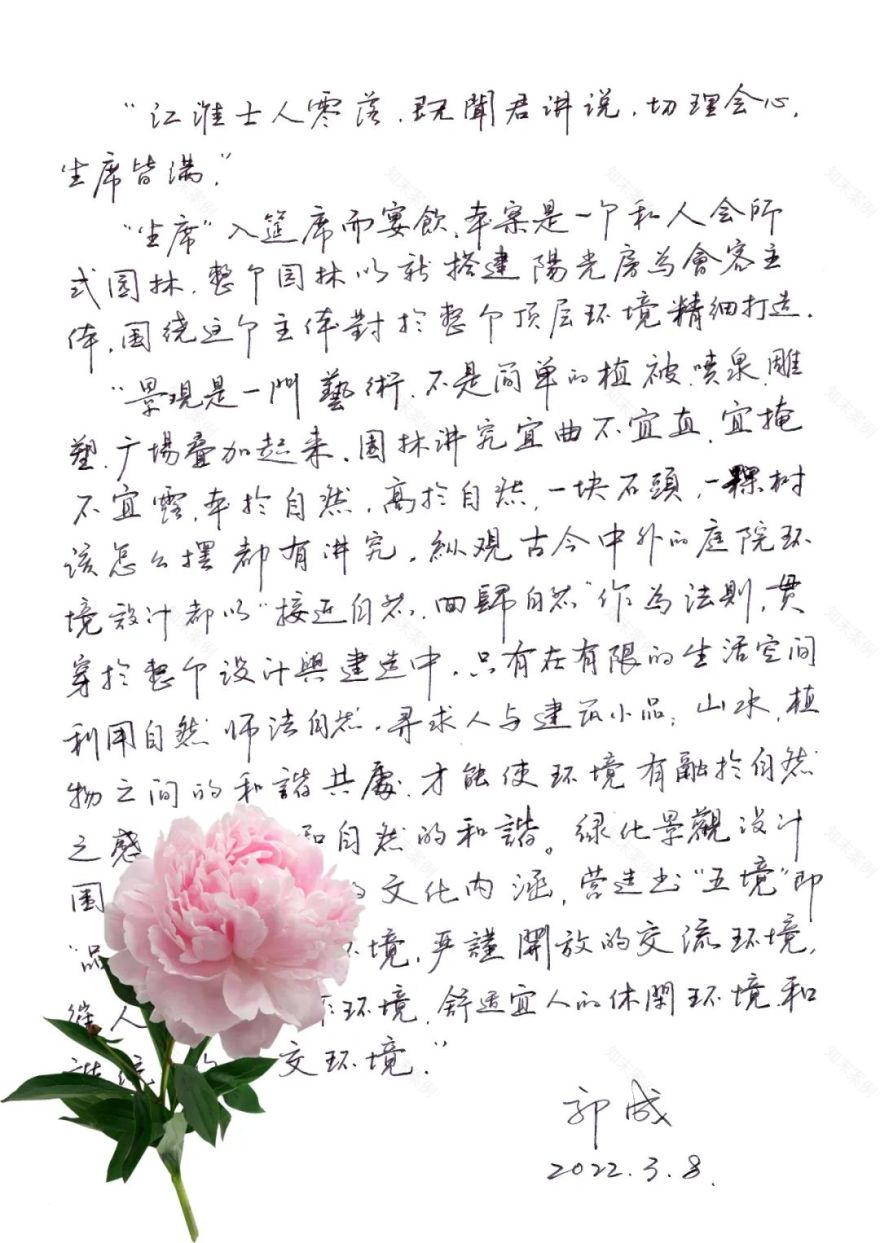 “江淮士人零落.既聞君讲说,切理会心,
坐席皆满.”
“坐席”入筵席而宴飲.本案是一个私人会所
式园林.整个园林以新搭建陽光房為會客主
体.围绕这个主体對於整个顶层环境精细打造.
“景观是一門藝術.不是简单的植被.喷泉.雕
塑.广場叠加起来.园林讲究宜曲不宜直.宜掩
不宜露.本於自然.高於自然.一块石頭,一棵树
该怎么摆都有讲究.纵观古今中外的庭院环
境設计都以“接近自然.回歸自然”作為法则.贯
穿於整个设计與建造中.只有在有限的生活空间
利用自然师法自然.寻求人与建筑小品,山水,植
物之间的和諧共處.才能使环境有融於自然
之感 和自然的和諧。绿化景觀设计
围 的文化内涵,营造出“五境”即
“品 环境.严謹開放的交流环境,
催人 环境.舒适宜人的休閑环境.和
諧 交环境.”
郭成
2022.3.8.
知末案例